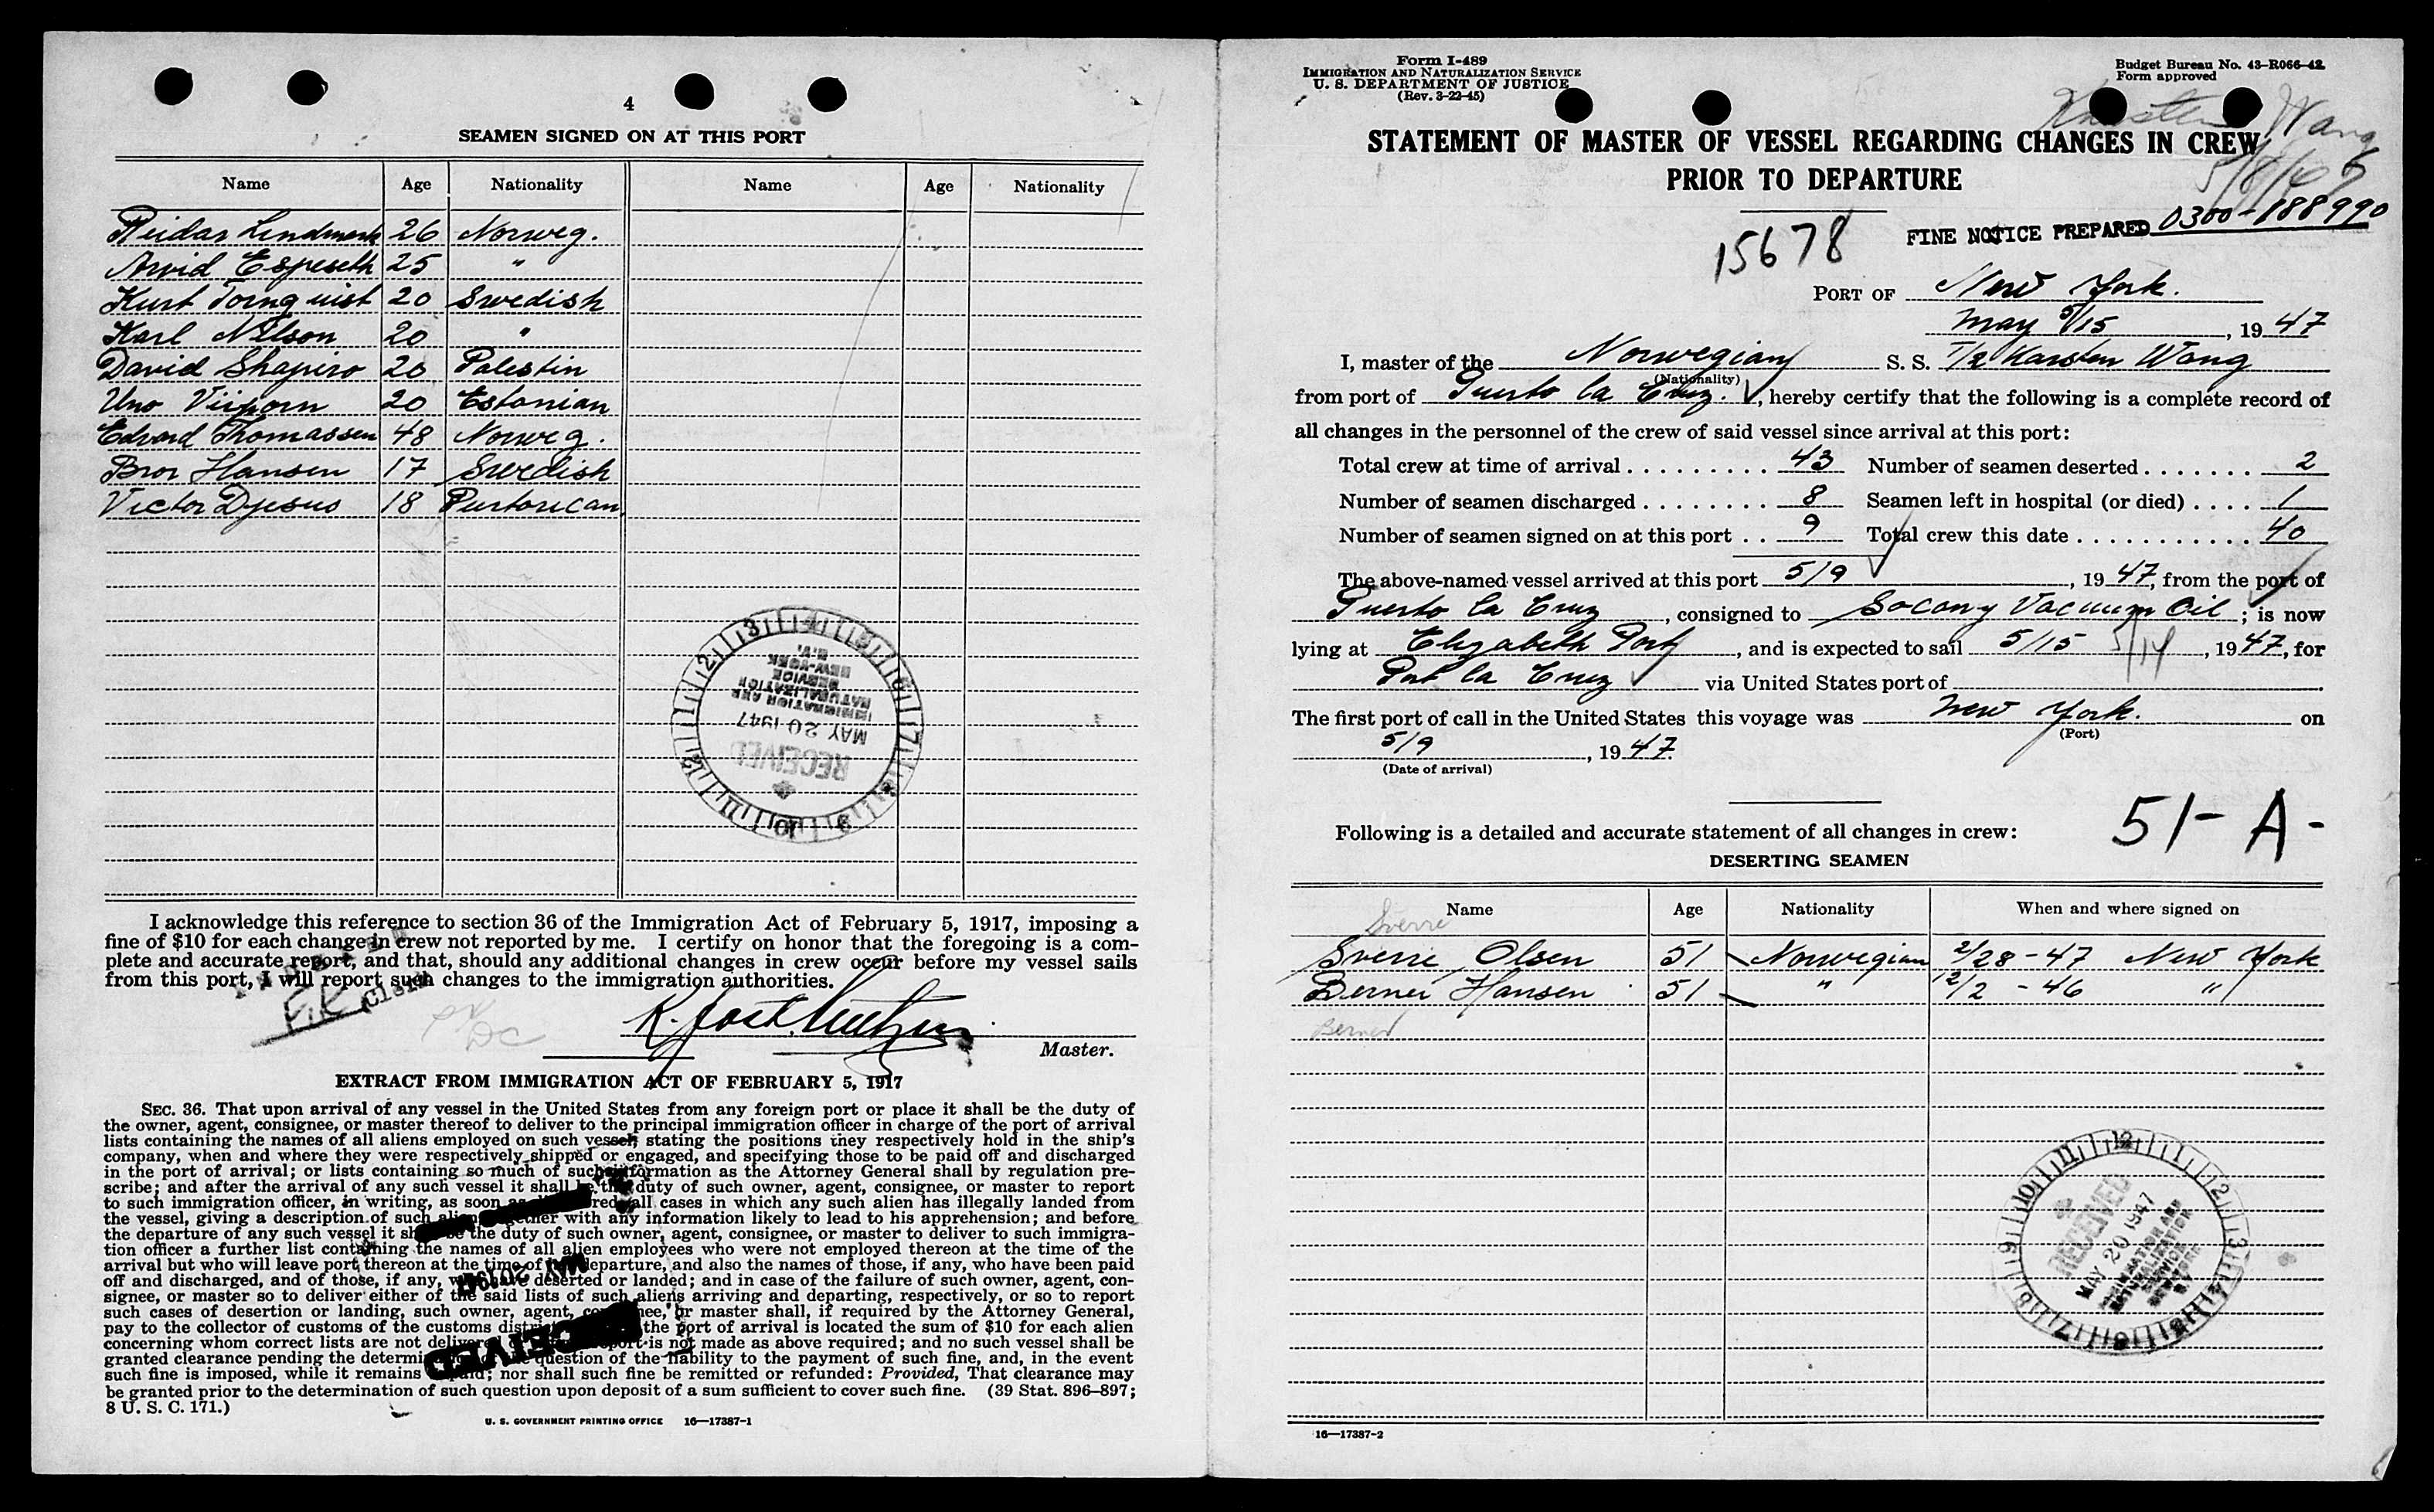 4
SEAMEN SIGNED ON AT THIS PORT
Name Age Nationality Name Age Nationality
Reidar Lindmark 26 Norweg.
Arvid Espeseth 25 "
Kurt Tornquist 20 Swedish
Karl Nilson 20 "
David Shapiro 20 Palestin
Uno Viiporn 20 Estonian
Edvard Thomassen 48 Norweg.
Bror Hansen 17 Swedish
Victor Djesus 18 Puertorican
RECEIVED
MAY 20 1947
IMMIGRATION AND
NATURALIZATION
SERVICE
NEW YORK
N.Y.
I acknowledge this reference to section 36 of the Immigration Act of February 5, 1917, imposing a
fine of $10 for each change in crew not reported by me. I certify on honor that the foregoing is a com-
plete and accurate report, and that, should any additional changes in crew occur before my vessel sails
from this port, I will report such changes to the immigration authorities.
Clerk
Master.
EXTRACT FROM IMMIGRATION ACT OF FEBRUARY 5, 1917
SEC. 36. That upon arrival of any vessel in the United States from any foreign port or place it shall be the duty of
the owner, agent, consignee, or master thereof to deliver to the principal immigration officer in charge of the port of arrival
lists containing the names of all aliens employed on such vessel, stating the positions they respectively hold in the ship's
company, when and where they were respectively shipped or engaged, and specifying those to be paid off and discharged
in the port of arrival; or lists containing so much of such information as the Attorney General shall by regulation pre-
scribe; and after the arrival of any such vessel it shall be the duty of such owner, agent, consignee, or master to report
to such immigration officer, in writing, as soon as discovered, all cases in which any such alien has illegally landed from
the vessel, giving a description of such alien, together with any information likely to lead to his apprehension; and before
the departure of any such vessel it shall be the duty of such owner, agent, consignee, or master to deliver to such immigra-
tion officer a further list containing the names of all alien employees who were not employed thereon at the time of the
arrival but who will leave port thereon at the time of her departure, and also the names of those, if any, who have been paid
off and discharged, and of those, if any, who have deserted or landed; and in case of the failure of such owner, agent, con-
signee, or master so to deliver either of the said lists of such aliens arriving and departing, respectively, or so to report
such cases of desertion or landing, such owner, agent, consignee, or master shall, if required by the Attorney General,
pay to the collector of customs of the customs district in which the port of arrival is located the sum of $10 for each alien
concerning whom correct lists are not delivered or a true report is not made as above required; and no such vessel shall be
granted clearance pending the determination of the question of the liability to the payment of such fine, and, in the event
such fine is imposed, while it remains unpaid; nor shall such fine be remitted or refunded: Provided, That clearance may
be granted prior to the determination of such question upon deposit of a sum sufficient to cover such fine. (39 Stat. 896-897;
8 U. S. C. 171.)
MAY 20 1947
RECEIVED
U. S. GOVERNMENT PRINTING OFFICE 16—17387-1
Form I-489
IMMIGRATION AND NATURALIZATION SERVICE
U. S. DEPARTMENT OF JUSTICE
(Rev. 3-22-45)
Budget Bureau No. 43-R066-42
Form approved
Karsten Wang
STATEMENT OF MASTER OF VESSEL REGARDING CHANGES IN CREW
PRIOR TO DEPARTURE
15678
FINE NOTICE PREPARED 0300-188990
PORT OF New York.
May 5/15, 1947
I, master of the Norwegian S. S. T/2 Karsten Wang
(Nationality)
from port of Puerto la Cruz., hereby certify that the following is a complete record of
all changes in the personnel of the crew of said vessel since arrival at this port:
Total crew at time of arrival 43 Number of seamen deserted 2
Number of seamen discharged 8 Seamen left in hospital (or died) 1
Number of seamen signed on at this port 9 Total crew this date 40
The above-named vessel arrived at this port 5/9, 1947, from the port of
Puerto la Cruz, consigned to Socony Vacuum Oil; is now
lying at Elizabeth Port, and is expected to sail 5/15 5/14, 1947, for
Port la Cruz via United States port of
The first port of call in the United States this voyage was New York. on
(Port)
5/9, 1947.
(Date of arrival)
51-A-
Following is a detailed and accurate statement of all changes in crew:
DESERTING SEAMEN
Name Age Nationality When and where signed on
Sverre
Sverre Olsen 51 Norwegian 2/28-47 New York
Berner Hansen 51 " 12/2 -46 "
Berner
RECEIVED
MAY 20 1947
IMMIGRATION AND
NATURALIZATION
SERVICE
NEW YORK
N.Y.
16—17387-2